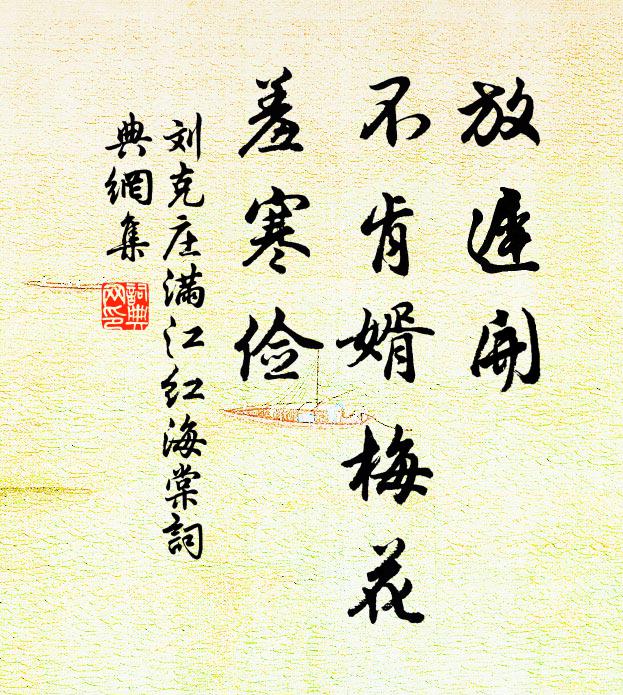 放遲開
不肯婿梅花
羞寒俭
刘克庄满江红海棠詞
典網集
詞典
网印